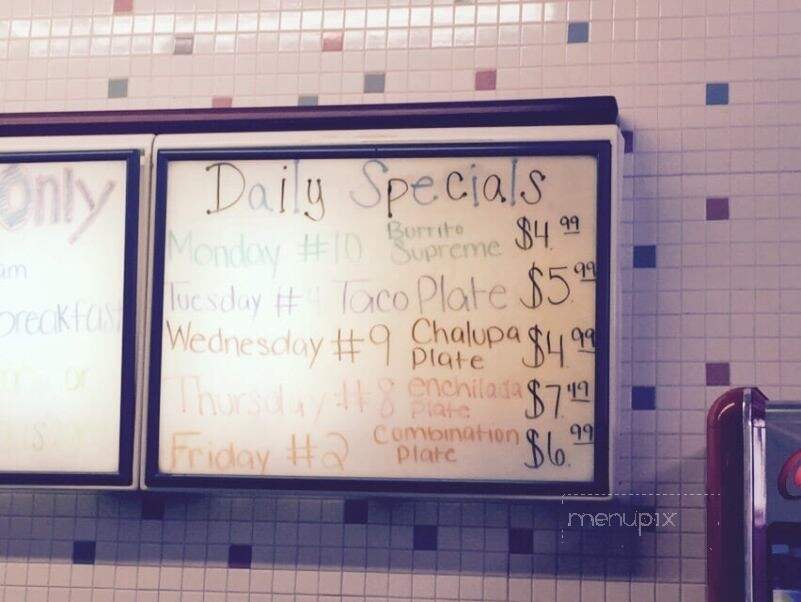 Only
am
breakfast
or
Daily Specials
Monday #10 Burrito Supreme $4.99
Tuesday #4 Taco Plate $5.99
Wednesday #9 Chalupa Plate $4.99
Thursday #8 enchilada Plate $7.49
Friday #2 Combination Plate $6.99
menupix